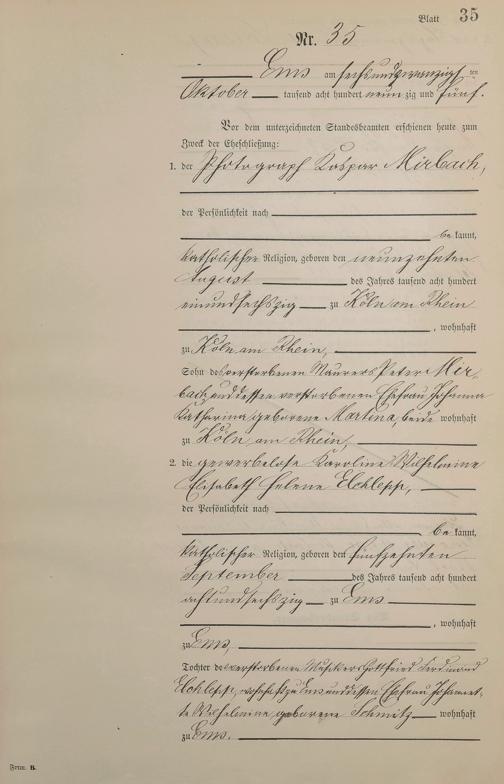 Blatt 35
Nr. 35
Ems am sechsundzwanzigsten
Oktober tausend acht hundert neunzig und fünf.
Vor dem unterzeichneten Standesbeamten erschienen heute zum
Zweck der Eheschließung:
1. der Photograph Kaspar Mirbach,
der Persönlichkeit nach
bekannt,
katholischer Religion, geboren den neunzehnten
August des Jahres tausend acht hundert
einundsechszig zu Köln am Rhein
, wohnhaft
zu Köln am Rhein,
Sohn des verstorbenen Maurers Peter Mir-
bach und dessen verstorbenen Ehefrau Johanna
Katharina geborene Martina, beide wohnhaft
zu Köln am Rhein,
2. die gewerbelose Karoline Wilhelmine
Elisabeth Helene Elchlepp,
der Persönlichkeit nach
bekannt,
katholischer Religion, geboren den fünfzehnten
September des Jahres tausend acht hundert
achtundsechszig zu Ems
, wohnhaft
zu Ems,
Tochter des verstorbenen Musikers Gottfried Ferdinand
Elchlepp, wohnhaft zu Ems und dessen Ehefrau
Wilhelmine geborene Schmitz wohnhaft
zu Ems.
Form. B.